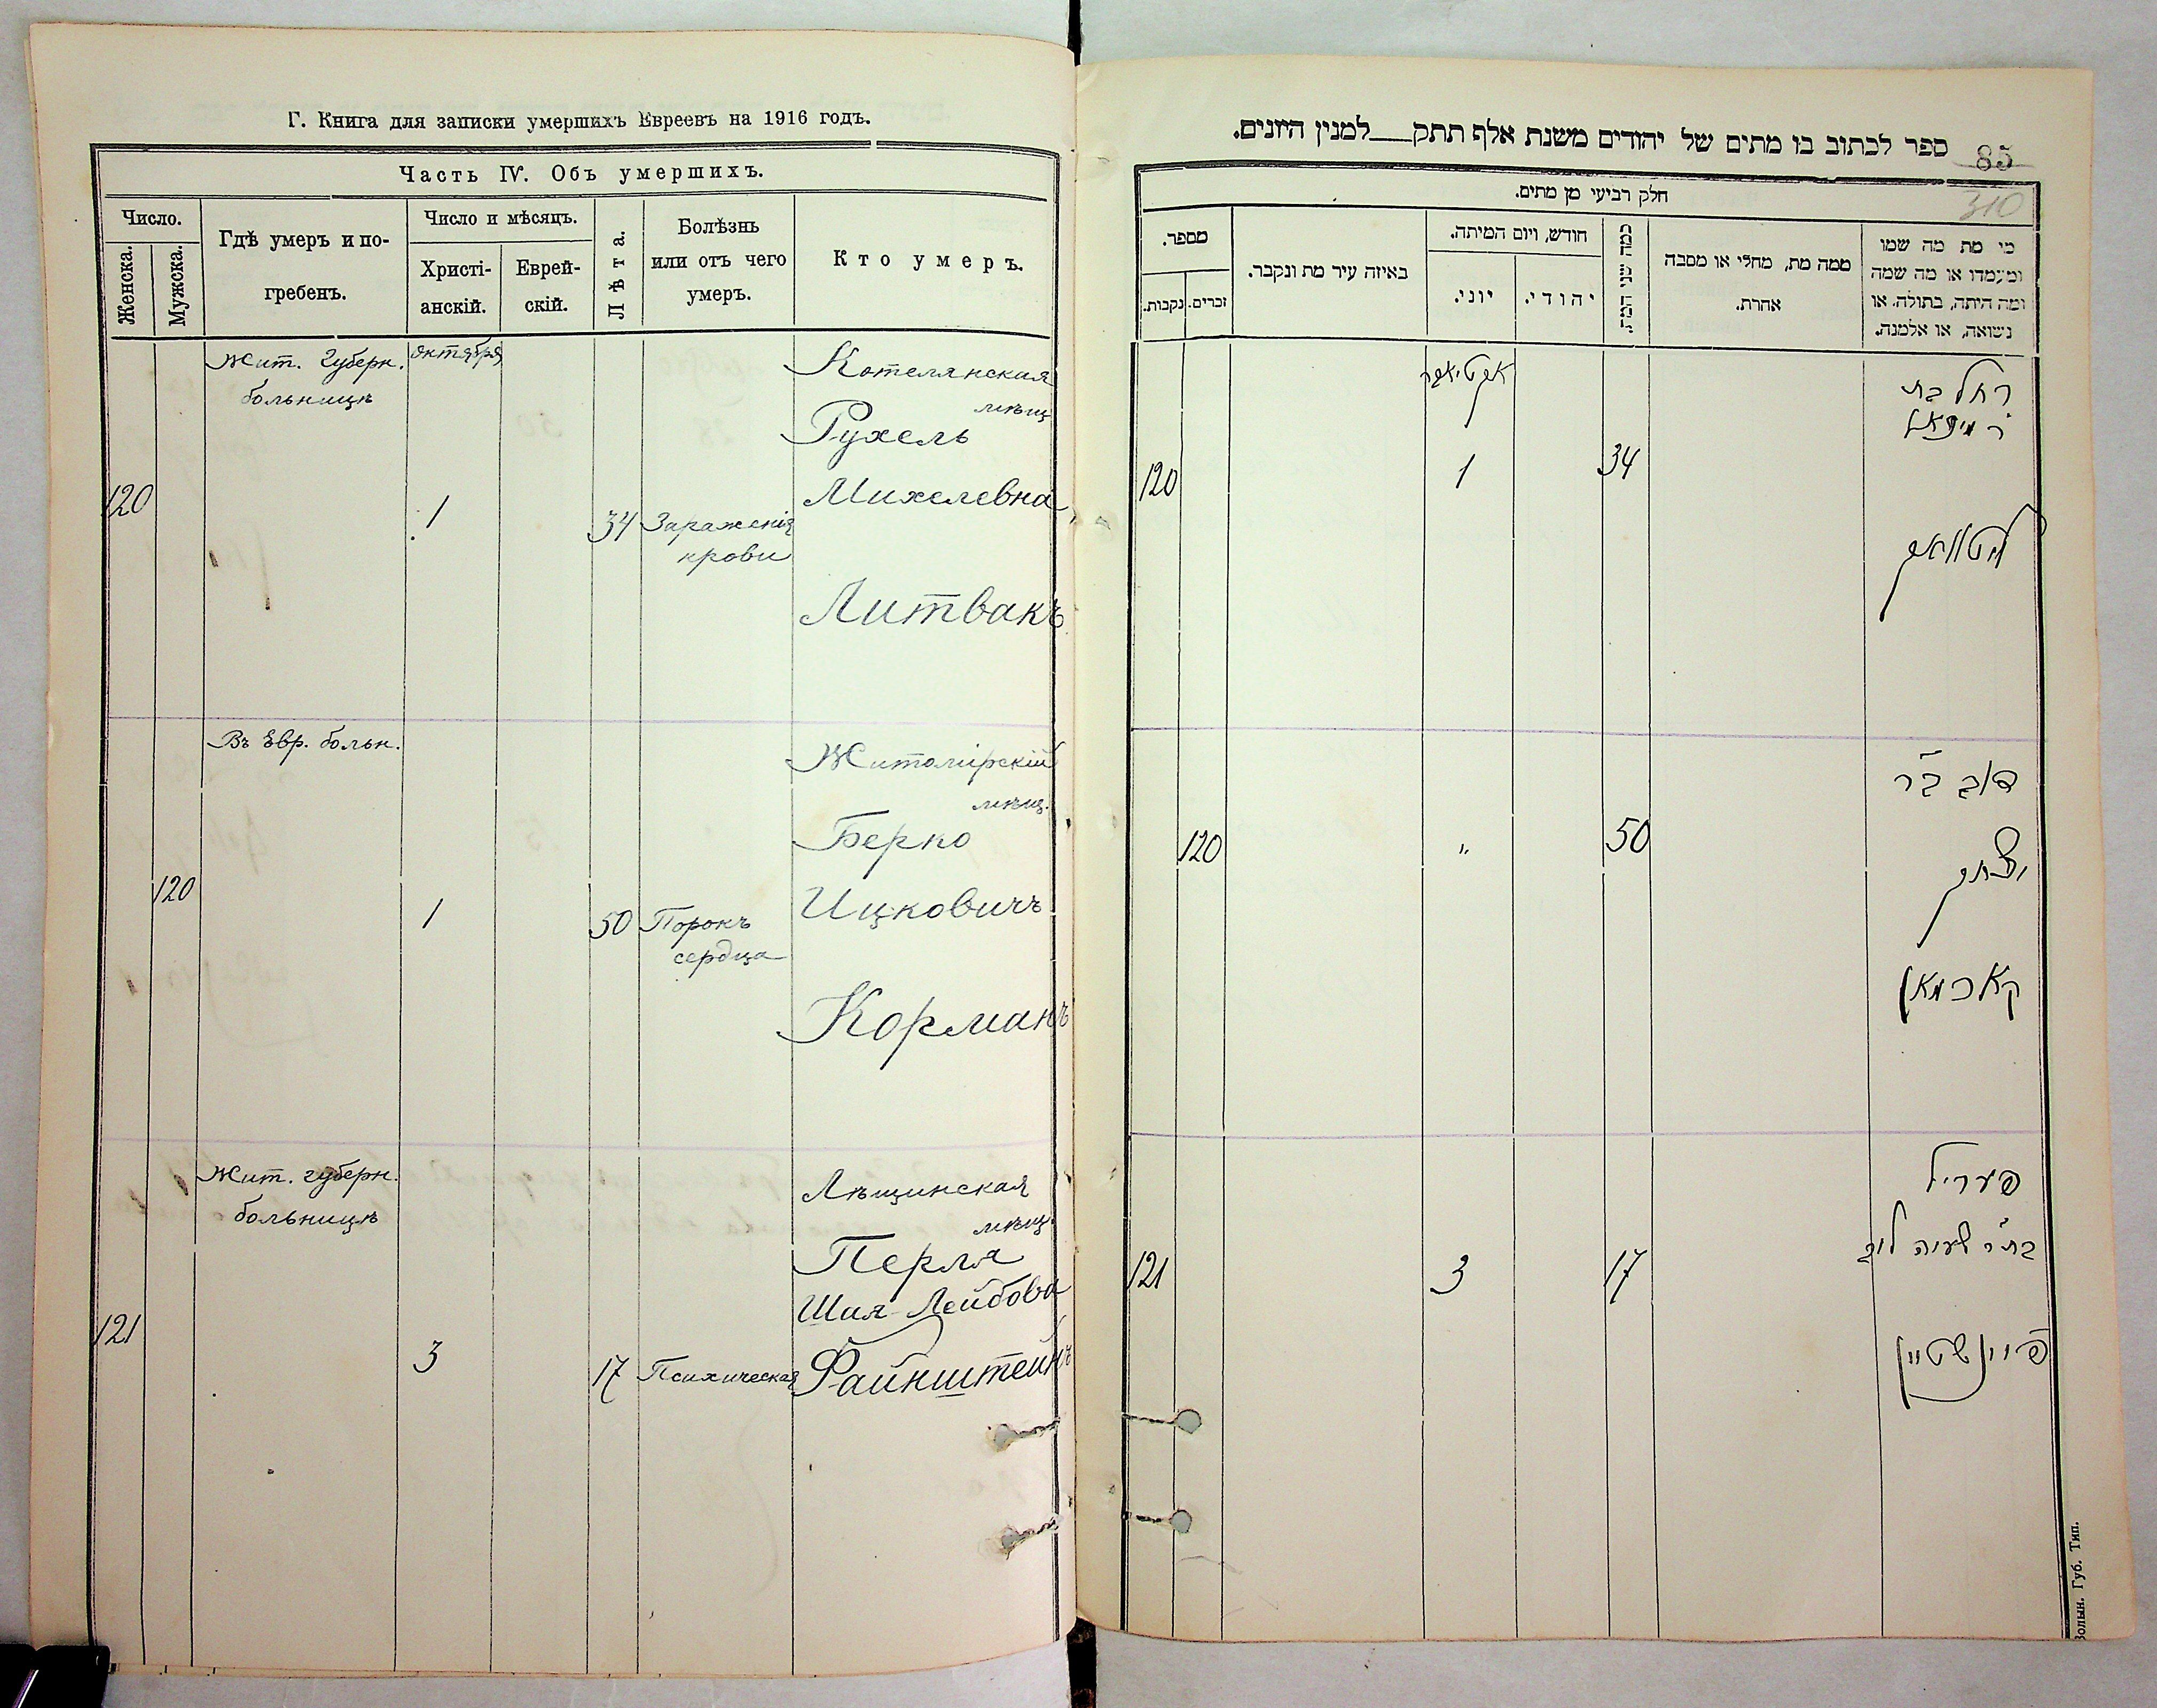 Г. Книга для записки умершихъ Евреевъ на 1916 годъ.
Часть IV. Объ умершихъ.
Число.
Женска.
Мужска.
Гдѣ умеръ и по-
гребенъ.
Число и мѣсяцъ.
Христі-
анскій.
Еврей-
скій.
Лѣта.
Болѣзнь
или отъ чего
умеръ.
Кто умеръ.
Жит. Губерн.
больницѣ
октября
120
1
34
Зараженія
крови
Котелянская
мѣщ
Рухель
Михелевна
Литвакъ
Въ Евр. больн.
120
1
50
Порокъ
сердца
Житомірскій
мѣщ.
Берко
Ицковичъ
Корманъ
Жит. губерн.
больницѣ
121
3
17
Психическая
Лѣщинская
мѣщ.
Перля
Шая-Лейбова
Файнштейнъ
ספר לכתוב בו מתים של יהודים משנת אלף תתק___למנין היונים.
85
310
חלק רביעי מן מתים.
מספר.
נקבות.
זכרים.
באיזה עיר מת ונקבר.
חודש, ויום המיתה.
יוני.
יהודי.
כמה שני המת.
ממה מת, מחלי או מסבה
אחרת.
מי מת מה שמו
ומעמדו או מה שמה
ומה היתה, בתולה. או
נשואה, או אלמנה.
120
1
34
רחל בת
ר מיכאל
ליטוואק
120
"
50
דוב בר
יצחק
קארמאן
121
3
17
פעריל
בת ר שעיה לוב
פיינשטיין
Волын. Губ. Тип.